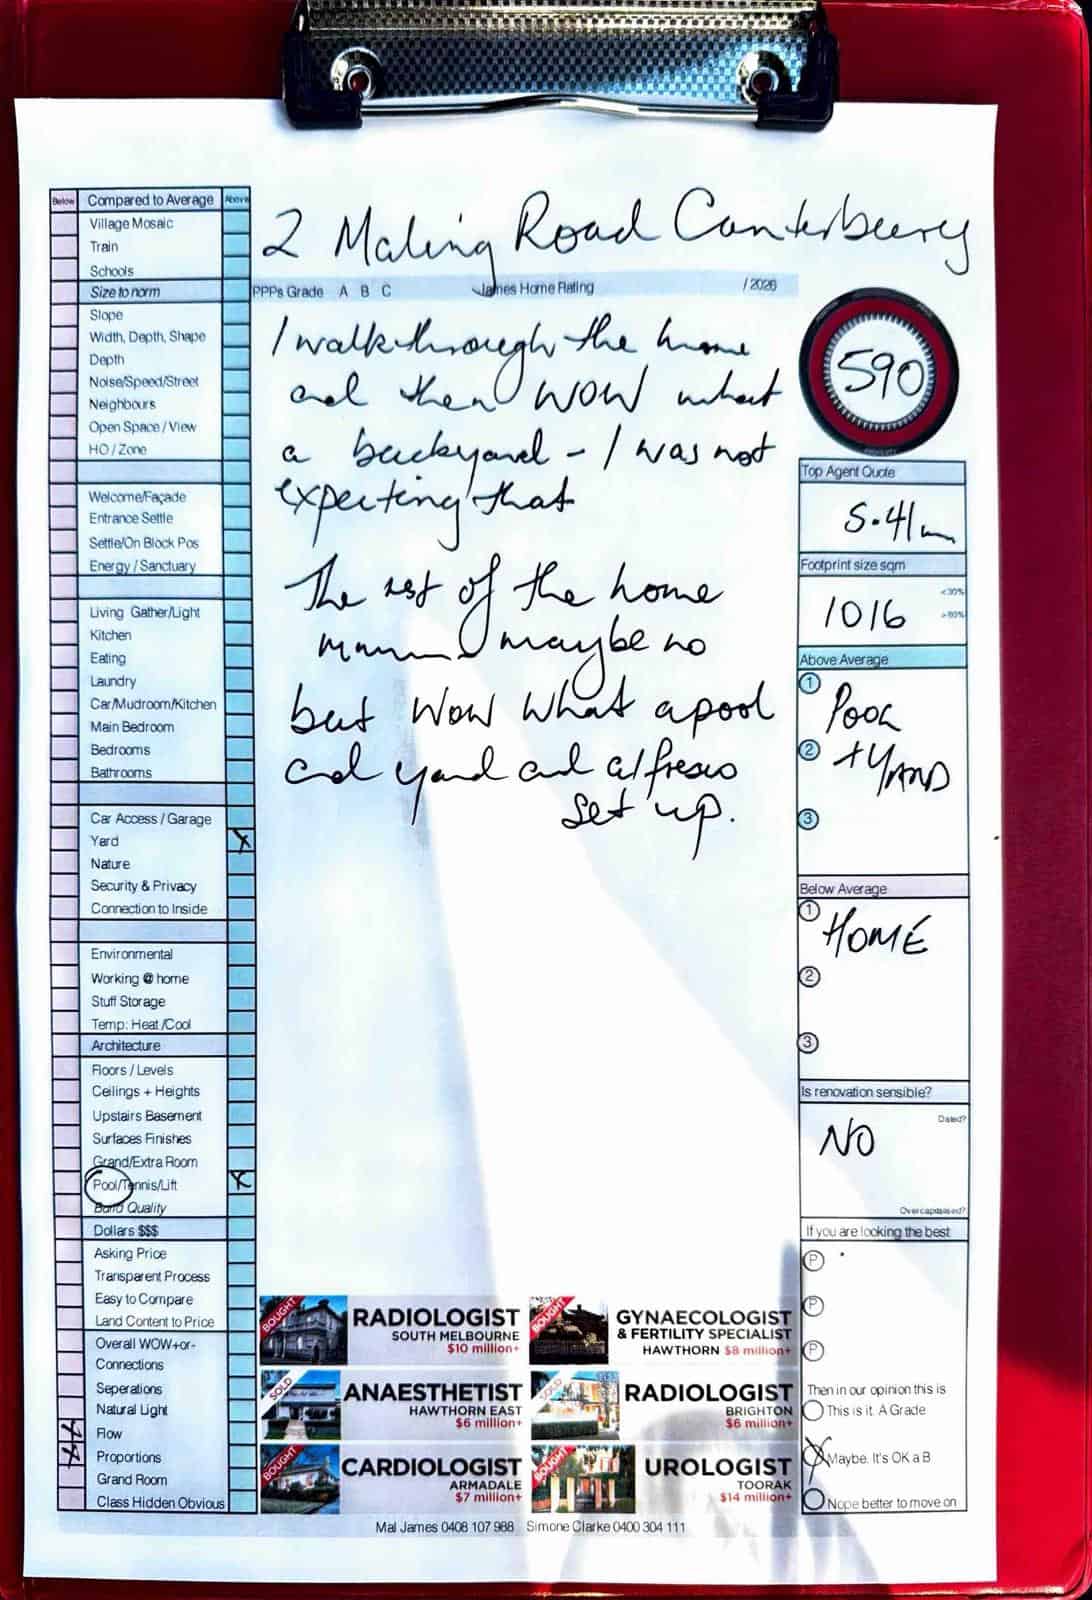 Below Compared to Average Above
Village Mosaic
Train
Schools
Size to norm
Slope
Width, Depth, Shape
Depth
Noise/Speed/Street
Neighbours
Open Space / View
HO / Zone
Welcome/Façade
Entrance Settle
Settle/On Block Pos
Energy / Sanctuary
Living Gather/Light
Kitchen
Eating
Laundry
Car/Mudroom/Kitchen
Main Bedroom
Bedrooms
Bathrooms
Car Access / Garage
Yard X
Nature
Security & Privacy
Connection to Inside
Environmental
Working @ home
Stuff Storage
Temp: Heat /Cool
Architecture
Floors / Levels
Ceilings + Heights
Upstairs Basement
Surfaces Finishes
Grand/Extra Room
Pool/Tennis/Lift X
Build Quality
Dollars $$$
Asking Price
Transparent Process
Easy to Compare
Land Content to Price
Overall WOW+or-
Connections
Seperations
Natural Light
Flow
Proportions
Grand Room
Class Hidden Obvious
2 Maling Road Canterbury
PPPs Grade A B C James Home Rating /2026
I walk through the home
and then WOW what
a backyard - I was not
expecting that
The rest of the home
maybe no
but WOW what a pool
and yard and alfresco
set up.
590
Top Agent Quote
5.41m
Footprint size sqm
<30%
1016
>60%
Above Average
1 POOL
2 + YARD
3
Below Average
1 HOME
2
3
Is renovation sensible?
Dated?
NO
Overcapitalised?
If you are looking the best
P
P
P
Then in our opinion this is
This is it. A Grade
X Maybe. It's OK a B
Nope better to move on
BOUGHT
RADIOLOGIST
SOUTH MELBOURNE
$10 million+
BOUGHT
GYNAECOLOGIST
& FERTILITY SPECIALIST
HAWTHORN $8 million+
SOLD
ANAESTHETIST
HAWTHORN EAST
$6 million+
SOLD
RADIOLOGIST
BRIGHTON
$6 million+
BOUGHT
CARDIOLOGIST
ARMADALE
$7 million+
BOUGHT
UROLOGIST
TOORAK
$14 million+
Mal James 0408 107 988 Simone Clarke 0400 304 111